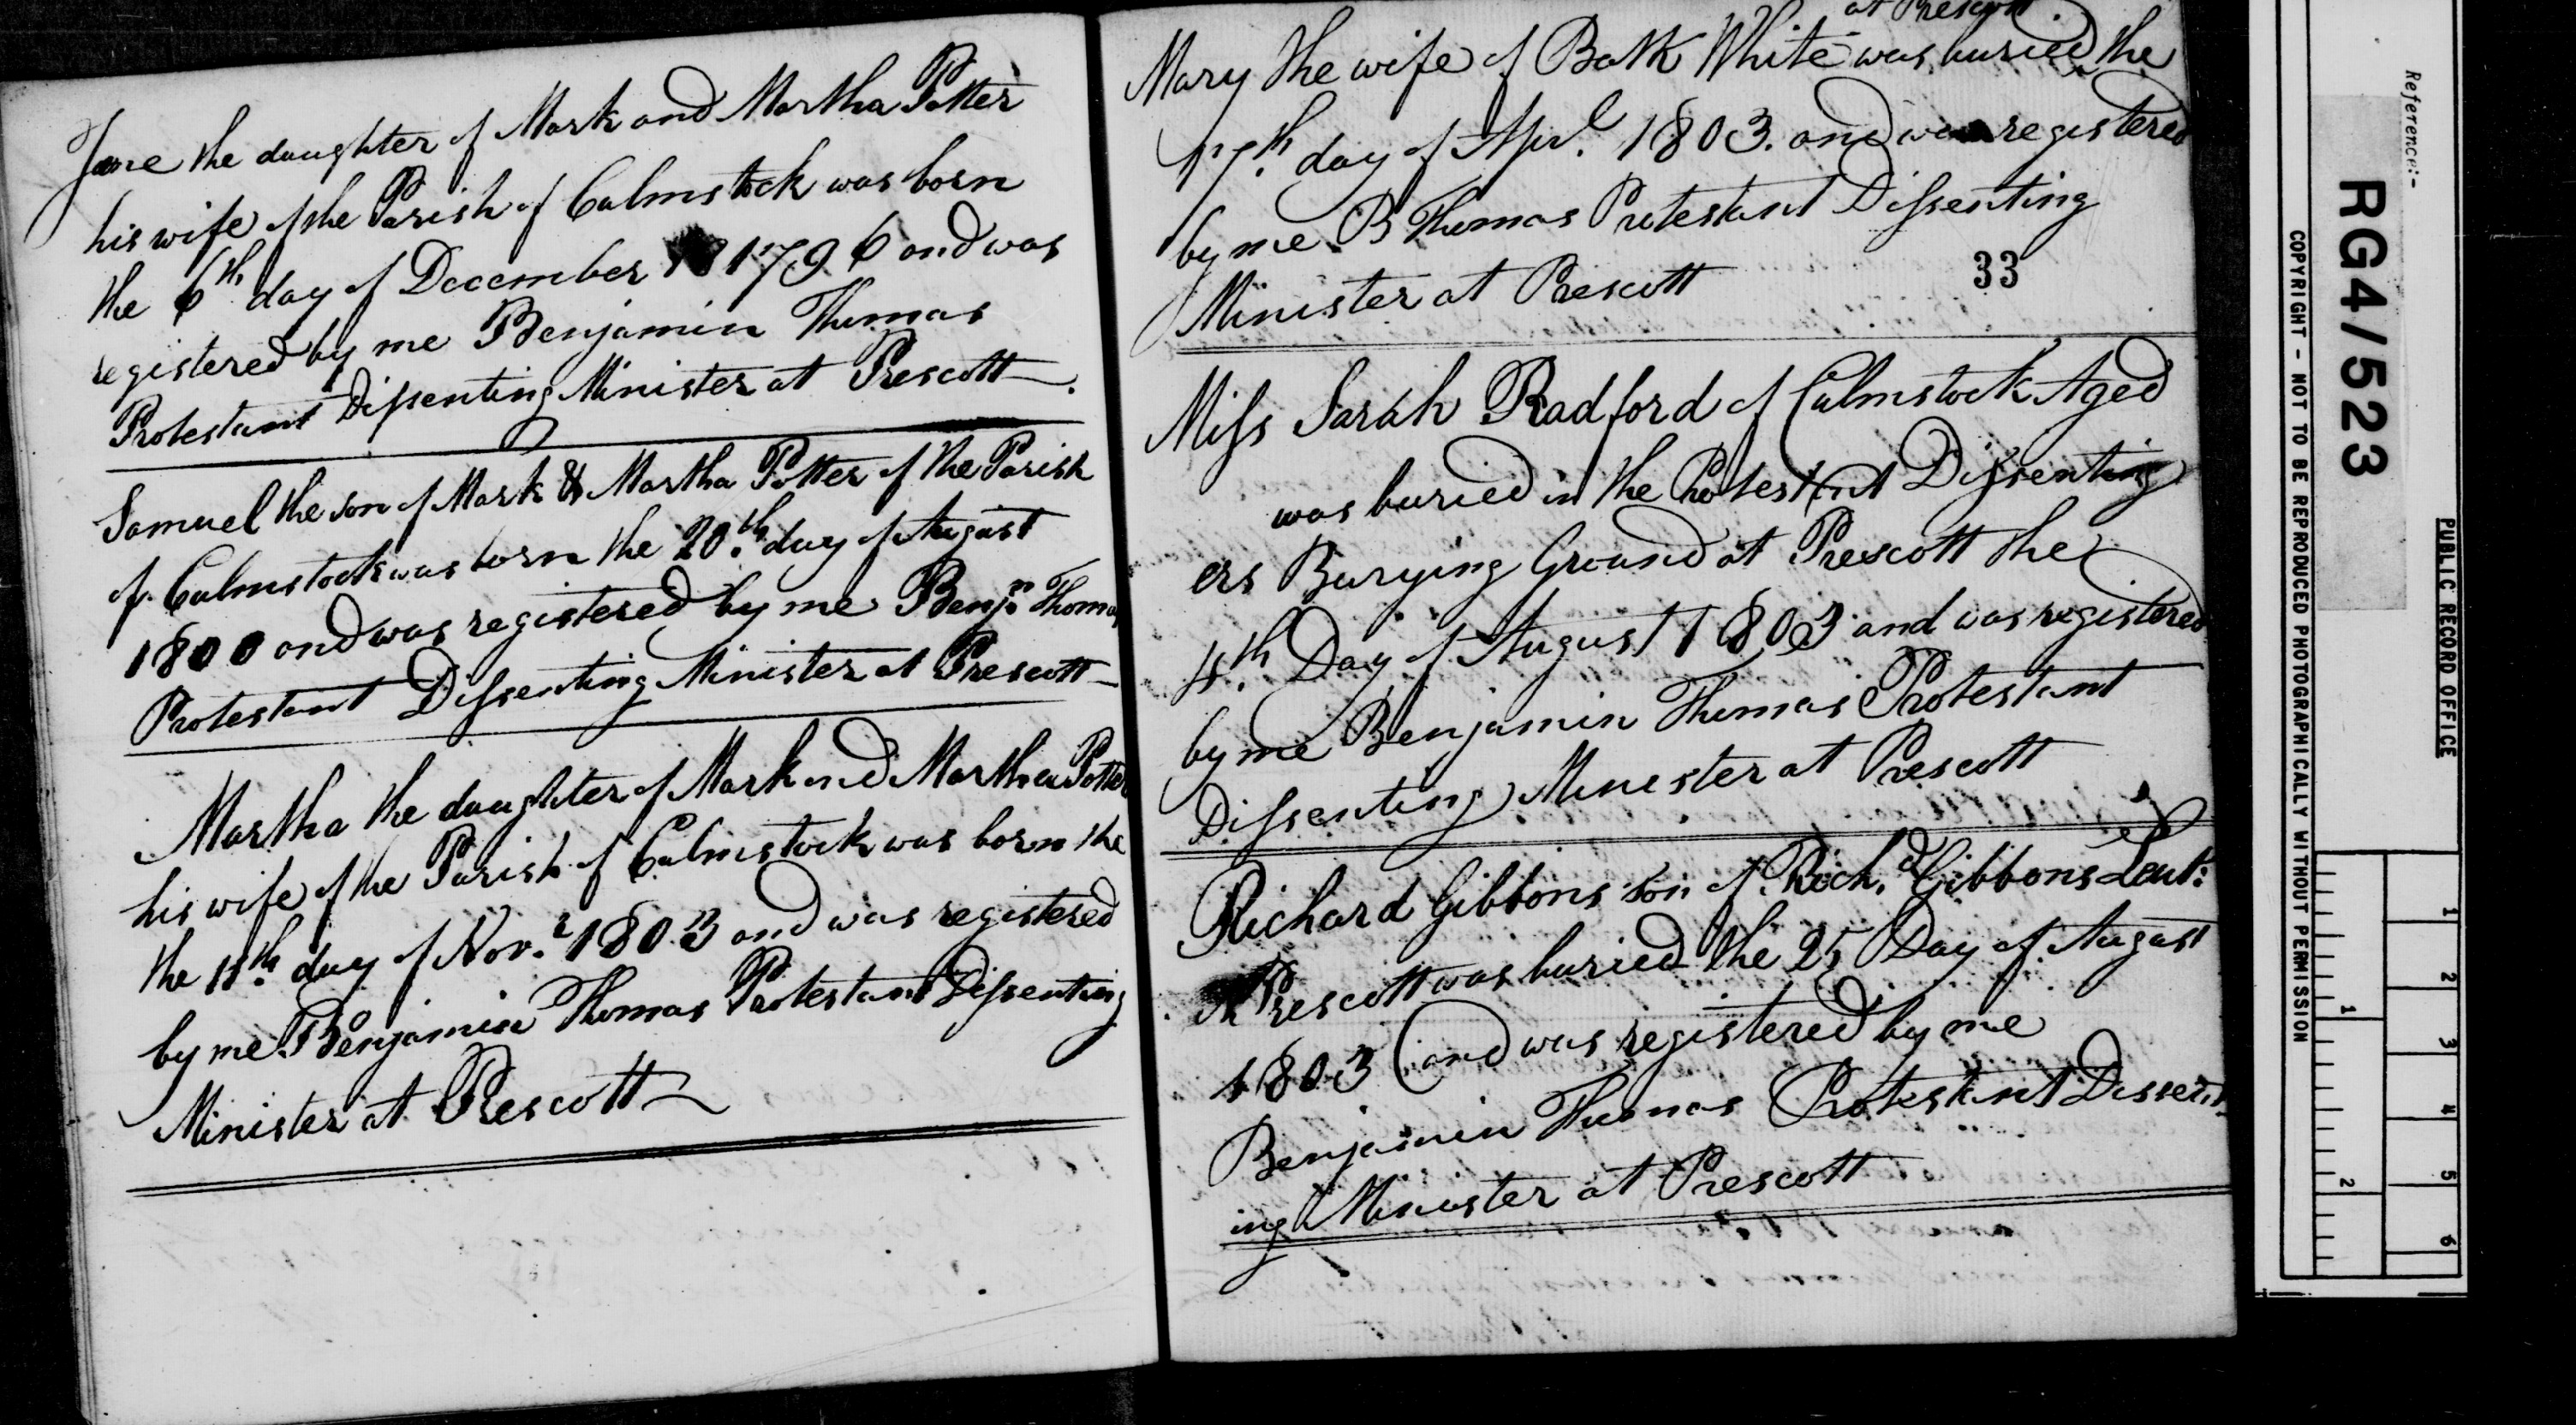 Jane the daughter of Mark and Martha Potter
his wife of the Parish of Culmstock was born
the 6th day of December 1796 and was
registered by me Benjamin Thomas
Protestant Dissenting Minister at Prescott
Samuel the son of Mark & Martha Potter of the Parish
of Culmstock was born the 20th day of August
1800 and was registered by me Benjn Thomas
Protestant Dissenting Minister at Prescott
Martha the daughter of Mark and Martha Potter
his wife of the Parish of Culmstock was born the
the 11th day of Novr 1803 and was registered
by me Benjamin Thomas Protestant Dissenting
Minister at Prescott
at Prescott
Mary the wife of White was buried the
17th day of Aprl 1803. and was registered
by me B Thomas Protestant Dissenting
Minister at Prescott
33
Miss Sarah Radford of Culmstock Aged
was buried in the Protestant Dissenting
ers Burying Ground at Prescott the
Day of August 1803 and was registered
by me Benjamin Thomas Protestant
Dissenting Minister at Prescott
Richard Gibbons son of Richd Gibbons
at Prescott was buried the 25 Day of August
1803 and was registered by me
Benjamin Thomas Protestant Dissent
ing Minister at Prescott
Reference:-
RG4/523
PUBLIC RECORD OFFICE
COPYRIGHT - NOT TO BE REPRODUCED PHOTOGRAPHICALLY WITHOUT PERMISSION
1
2
1
2
3
4
5
6